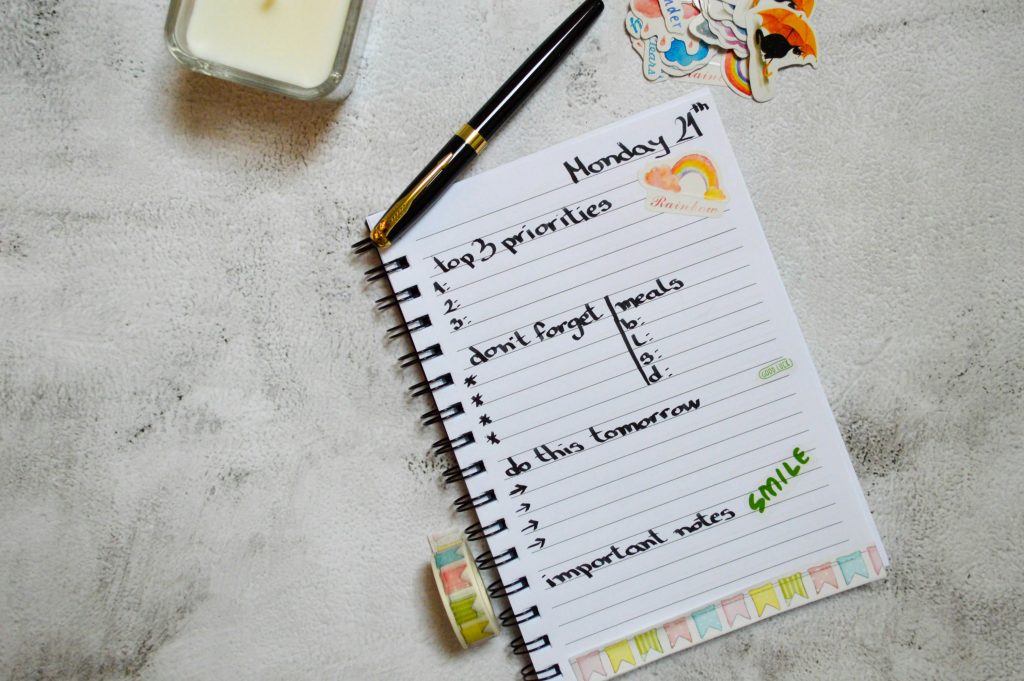 Monday 21th
Rainbow
top 3 priorities
1:-
2:-
3:-
don't forget
*
*
*
*
meals
b:-
L:-
s:-
d:-
GOOD LUCK
do this tomorrow
→
→
→
→
SMILE
important notes